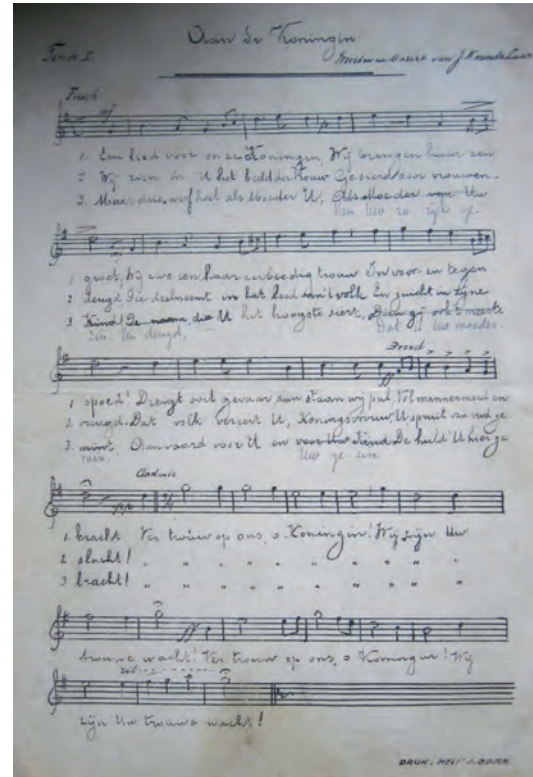 Aan de Koningin
Tenor I. Woorden en Muziek van J.
Frisch mf
1. Een lied voor onze Koningin, Wij brengen haar een
2 Wij zien in U het beeld der trouw Gesierd door vrouwen-
3. Maar driewerf heil als Moeder U, Als Moeder van Uw
Van Uw zo rijk ge-
1 groet, Wij zweren haar eerbiedig trouw In voor- en tegen
2 deugd Die deelneemt in het leed van 't volk En juicht in zijne
3 Kind! De naam, die U het hoogste siert, Daar gij ook 't meeste
zin. Uw deugd, Dat Uw moeder-
Breed
1 spoed! Dreigt ooit gevaar dan staan wij pal, Vol mannenmoed en
2 vreugd. Dat volk vereert U, Koningsvrouw, U spruit van oud ge-
3. mint. Aanvaard voor U en voor Uw Kind De huld' U hier ge
Uw ge-zin
Andante
1. kracht Ver trouw op ons, o Koningin! Wij zijn Uw
2 slacht! " " " " " " " "
3 bracht! " " " " " " " "
ff
trouwe wacht! Ver trouw op ons, o Koningin! Wij
rit.
zijn Uw trouwe wacht!
DRUK: